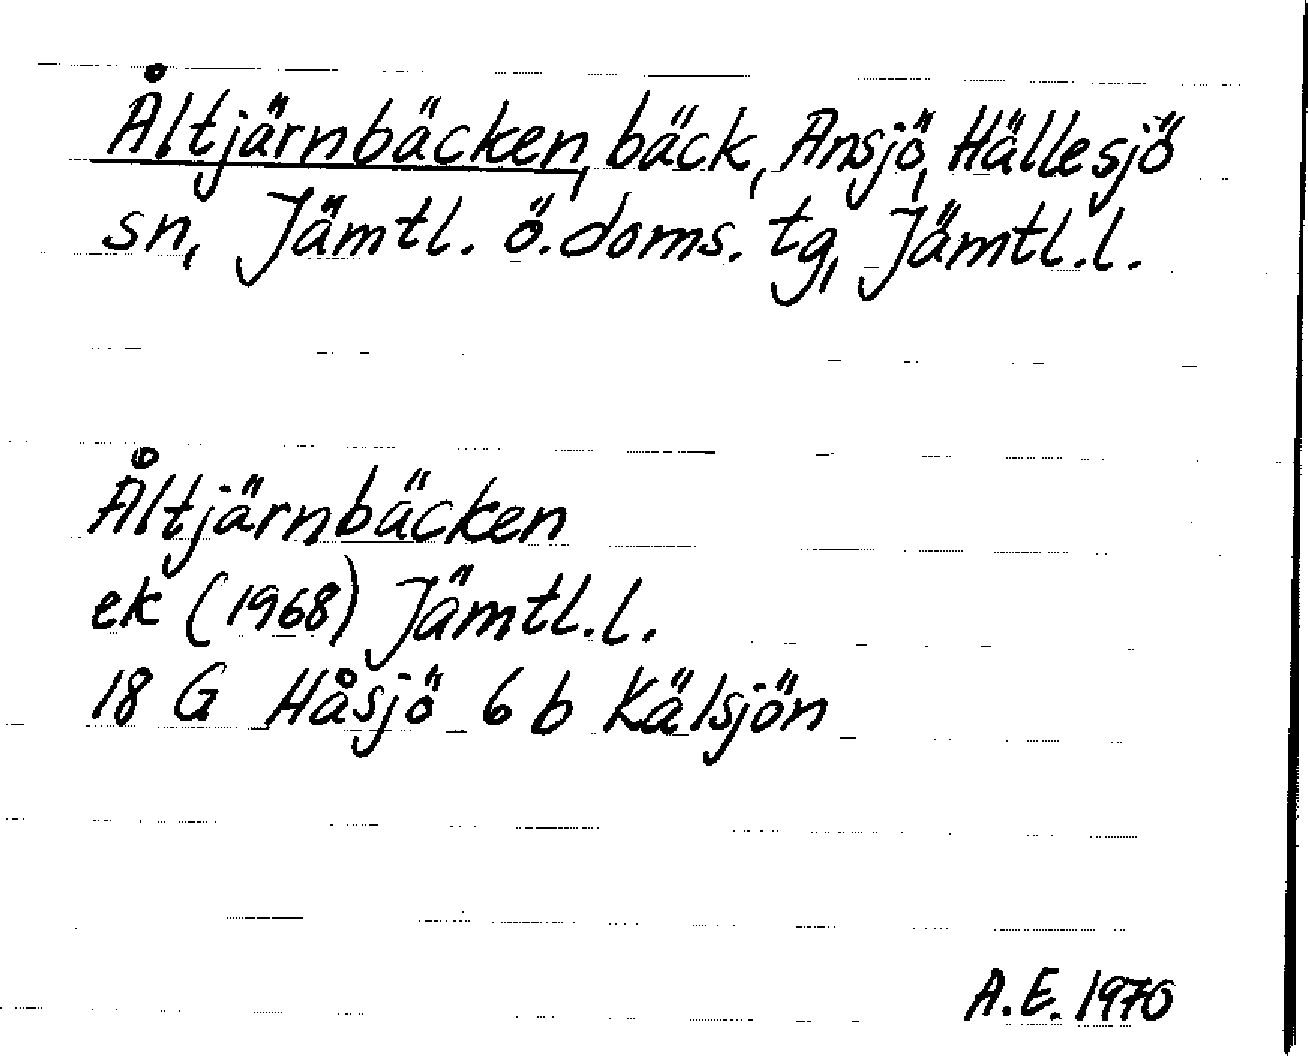 Åltjärnbäcken, bäck, Ansjö, Hällesjö
sn, Jämtl. ö. doms. tg, Jämtl. l.
Åltjärnbäcken
ek (1968) Jämtl. l.
18 G Håsjö 6 b Kälsjön
A.E. 1970